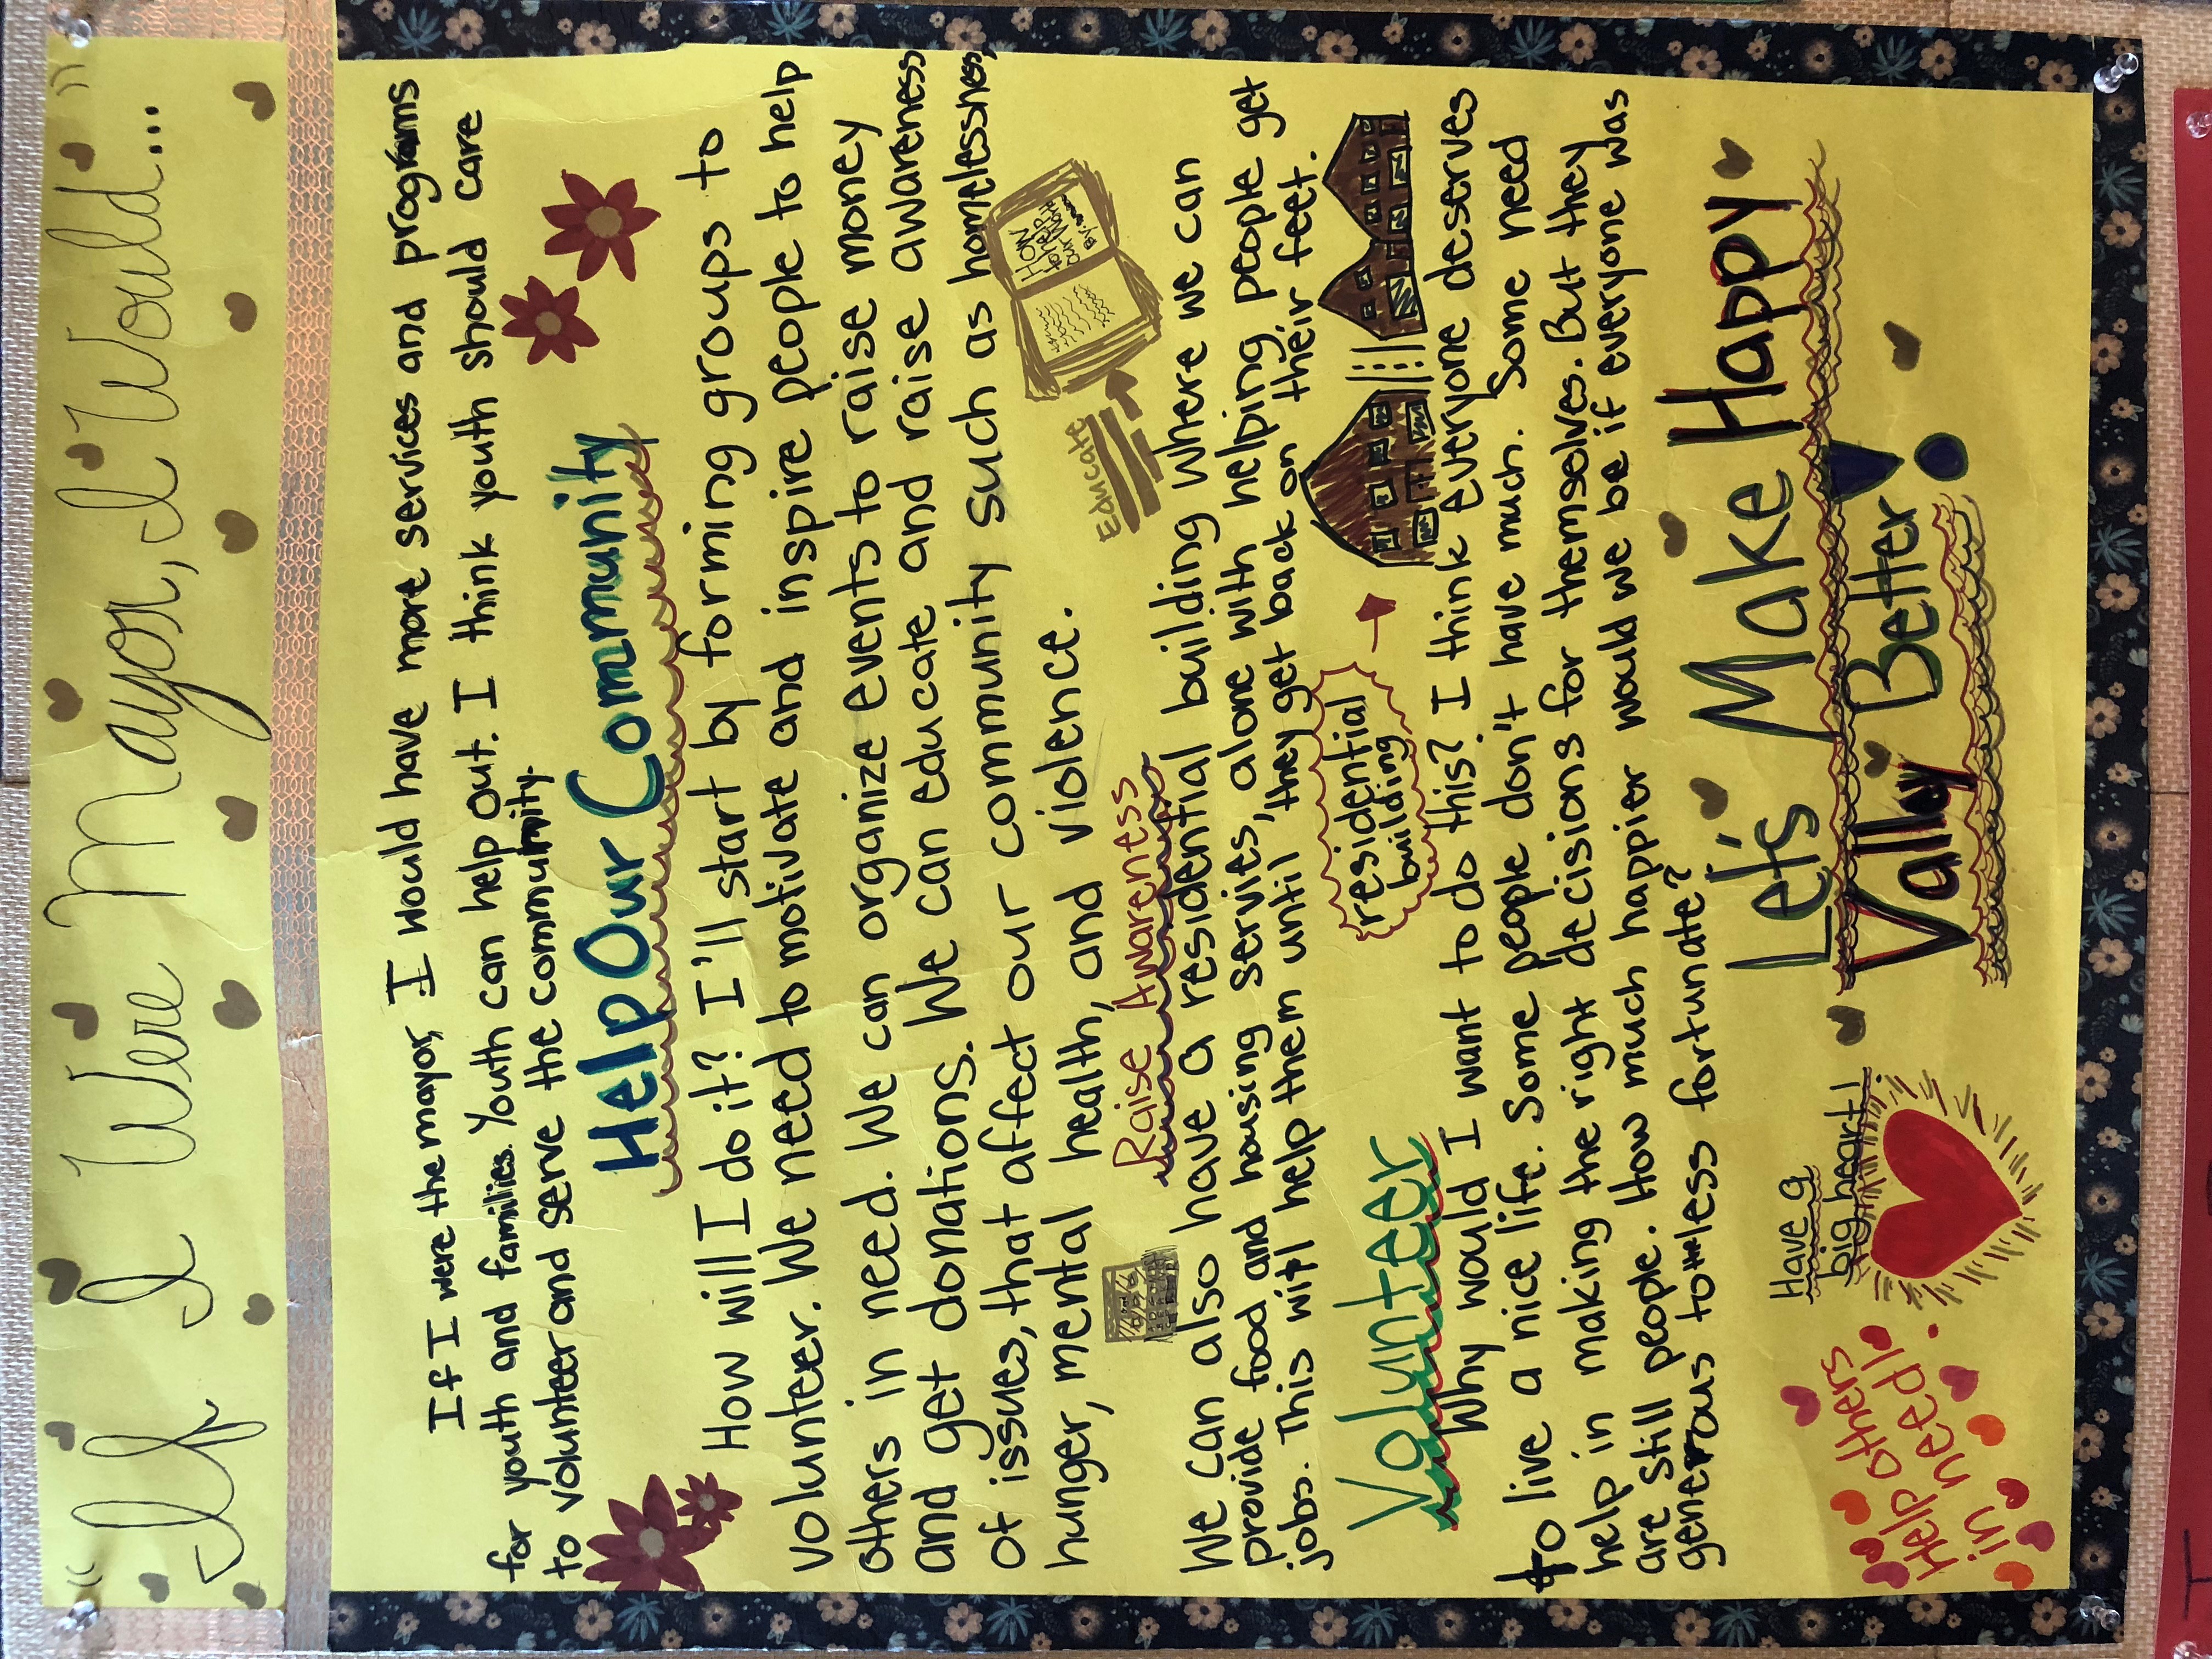 "If I Were Mayor, I Would..."
If I were the mayor, I would have more services and programs
for youth and families. Youth can help out. I think youth should care
to volunteer and serve the community.
Help Our Community
How will I do it? I'll start by forming groups to
volunteer. We need to motivate and inspire people to help
others in need. We can organize events to raise money
and get donations. We can educate and raise awareness
of issues, that affect our community such as homelessness,
hunger, mental health, and violence.
Raise Awareness
Educate
HOW
to help
our world
By:
We can also have a residential building where we can
provide food and housing servies, alone with helping people get
jobs. This will help them until they get back on their feet.
Volunteer
residential
building
Why would I want to do this? I think everyone deserves
to live a nice life. Some people don't have much. Some need
help in making the right decisions for themselves. But they
are still people. How much happier would we be if everyone was
generous to less fortunate?
Help others
in need!
Have a
big heart!
Let's Make Happy
Valley Better!